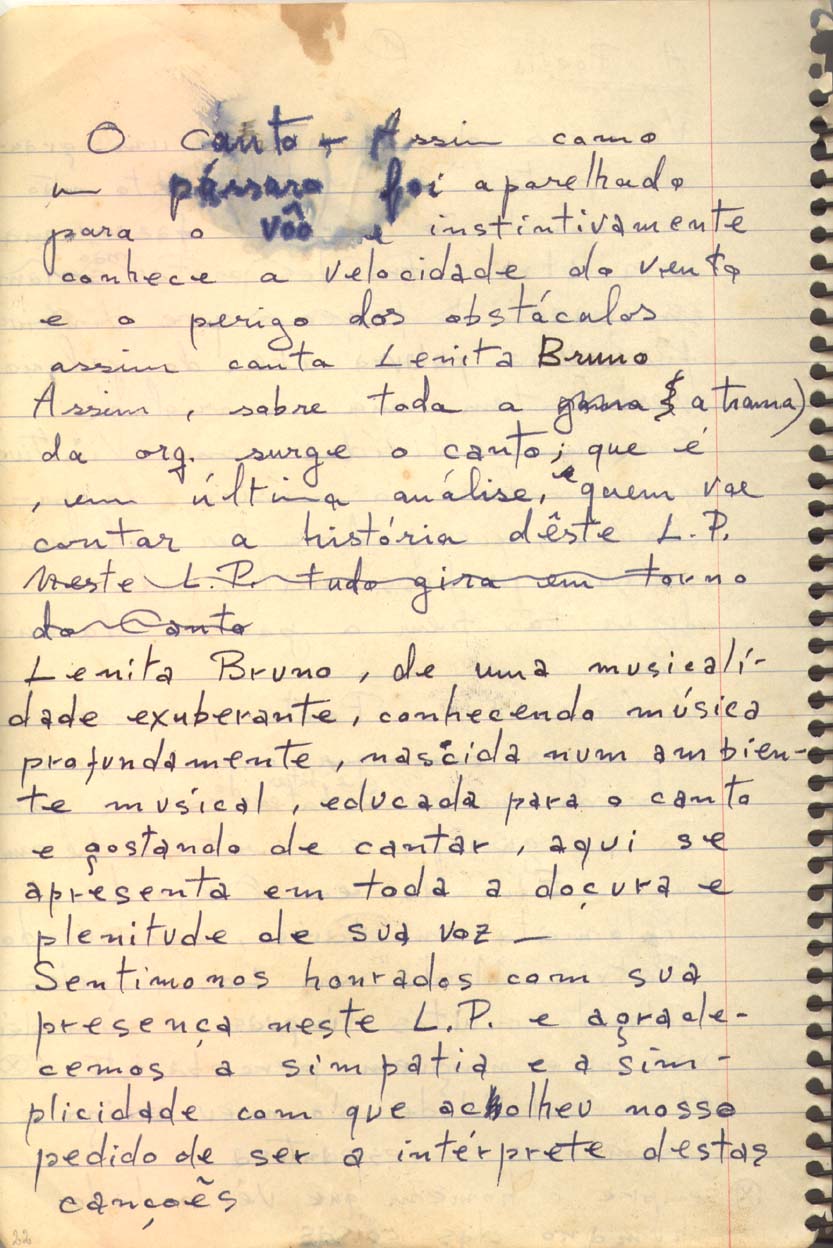 O canto - Assim como
um pássaro foi aparelhado
para o vôo e instintivamente
conhece a velocidade do vento
e o perigo dos obstáculos
assim canta Lenita Bruno
Assim, sobre toda a gama (a trama)
da orq. surge o canto; que é
, em última análise, e quem vae
contar a história dêste L.P.
Neste L.P. tudo gira em torno
do Canto
Lenita Bruno, de uma musicali-
dade exuberante, conhecendo música
profundamente, nascida num ambien-
te musical, educada para o canto
e gostando de cantar, aqui se
apresenta em toda a doçura e
plenitude de sua voz —
Sentimonos honrados com sua
presença neste L.P. e agrade-
cemos a simpatia e a sim-
plicidade com que acolheu nosso
pedido de ser a intérprete destas
cançoẽs
22